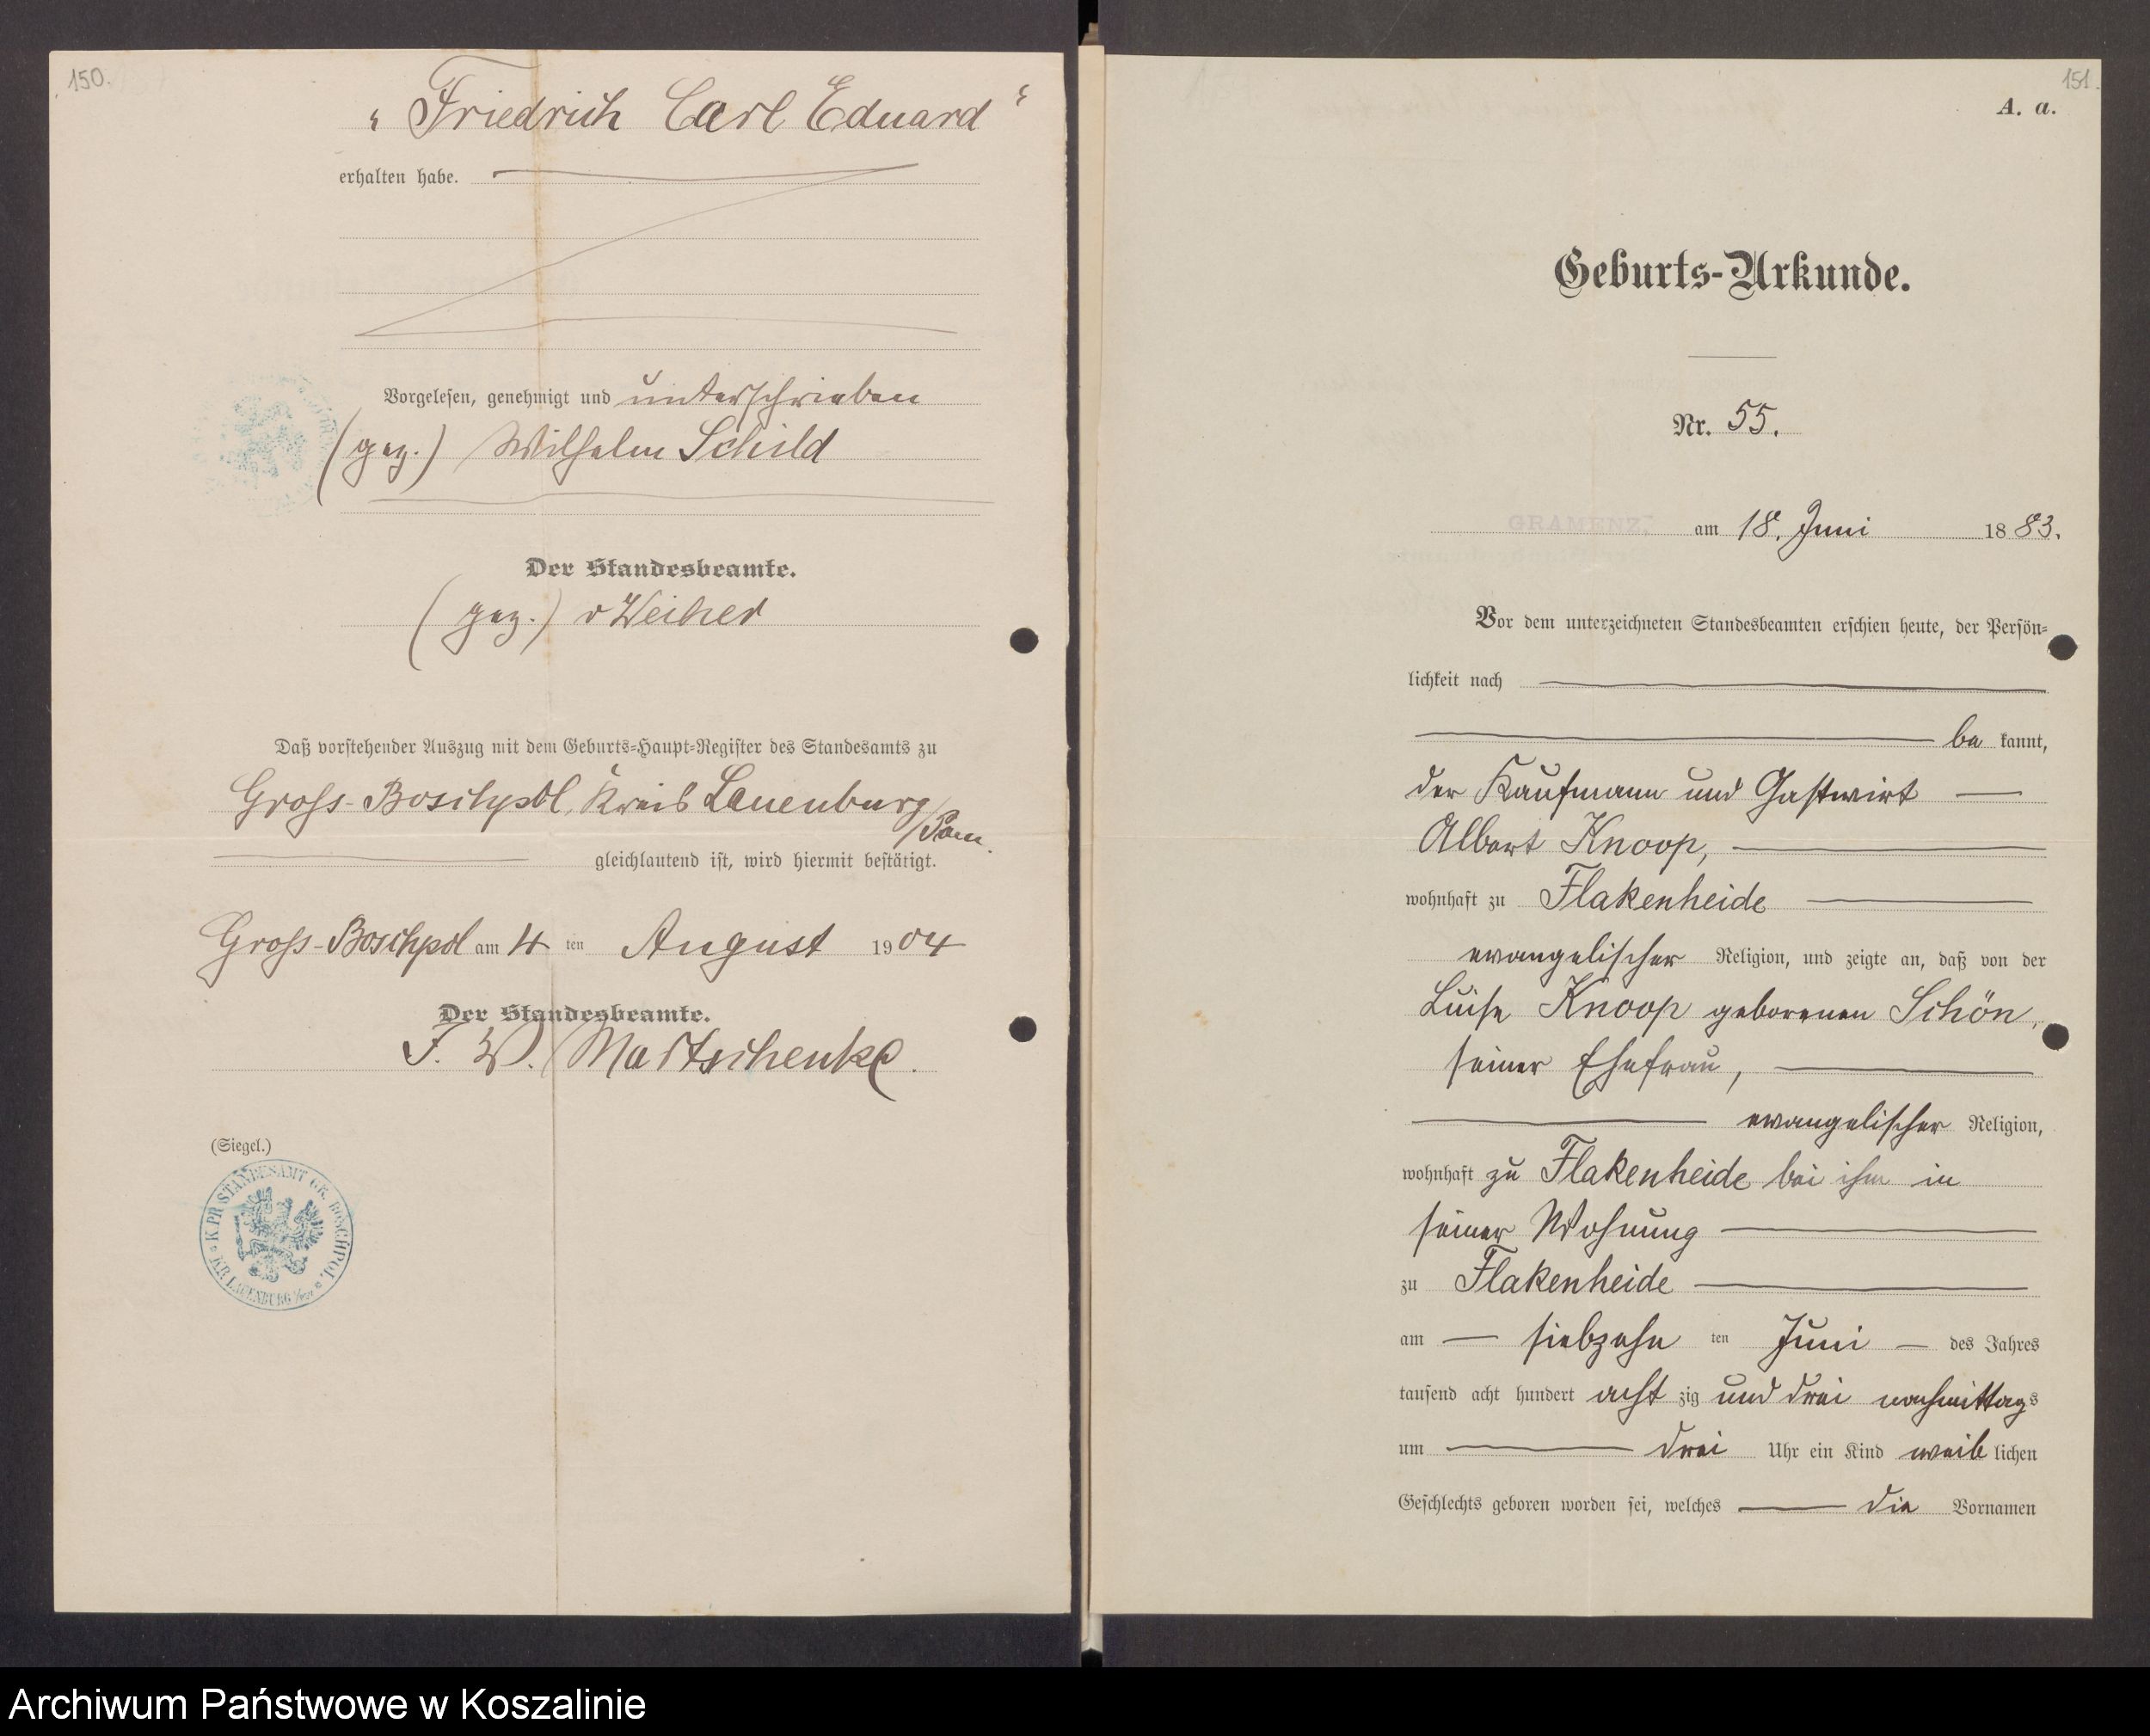 150.
„Friedrich Carl Eduard“
erhalten habe.
Vorgelesen, genehmigt und unterschrieben
(gez.) Wilhelm Schild
Der Standesbeamte.
(gez.) v Weiher
Daß vorstehender Auszug mit dem Geburts-Haupt-Register des Standesamts zu
Gross-Boschpol, Kreis Lauenburg
/Pom.
gleichlautend ist, wird hiermit bestätigt.
Gross-Boschpol am 4 ten August 1904
Der Standesbeamte.
J. V. Martschenke.
(Siegel.)
K. PR. STANDESAMT GR. BOSCHPOL
KR. LAUENBURG i/Pom
151.
A. a.
Geburts-Urkunde.
Nr. 55.
GRAMENZ, am 18. Juni 1883.
Vor dem unterzeichneten Standesbeamten erschien heute, der Persön-
lichkeit nach
be kannt,
der Kaufmann und Gastwirt
Albert Knoop,
wohnhaft zu Flakenheide
evangelischer Religion, und zeigte an, daß von der
Luise Knoop geborenen Schön,
seiner Ehefrau,
evangelischer Religion,
wohnhaft zu Flakenheide bei ihm in
seiner Wohnung
zu Flakenheide
am siebzehn ten Juni des Jahres
tausend acht hundert acht zig und drei nachmittags
um drei Uhr ein Kind weib lichen
Geschlechts geboren worden sei, welches die Vornamen
Archiwum Państwowe w Koszalinie